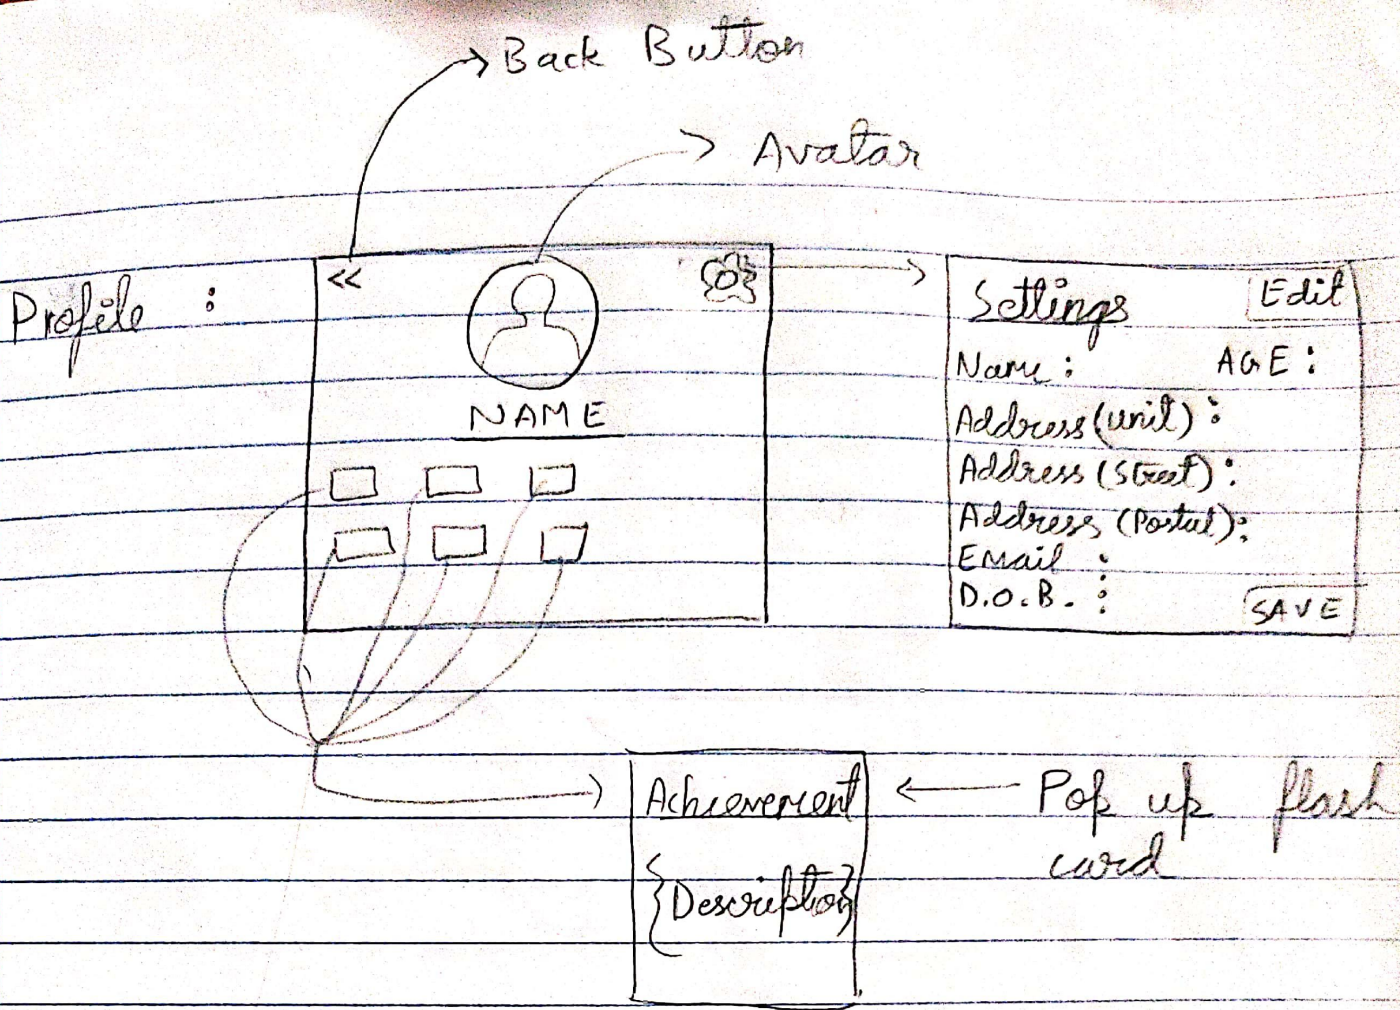 Back Button
Avatar
Profile :
<<
NAME
Settings
Edit
Name :
AGE :
Address (Unit) :
Address (Street) :
Address (Postal) :
EMail :
D.O.B. :
SAVE
Achievement
{Description}
Pop up flash
card